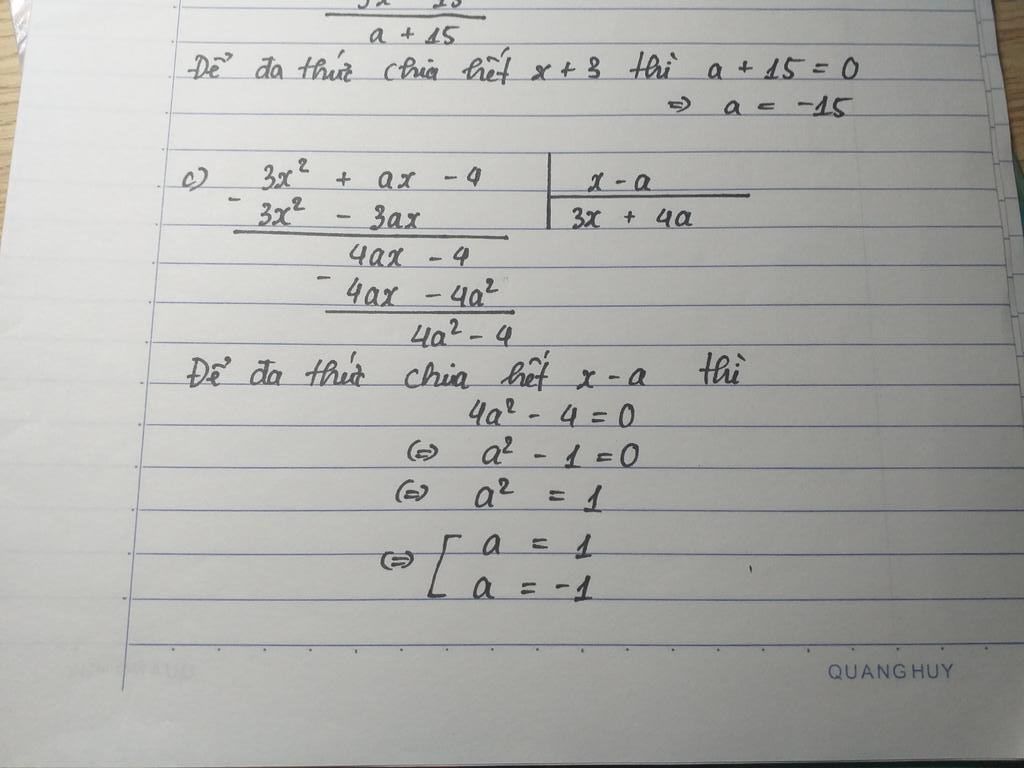 3x 15
a + 15
Để đa thức chia hết x + 3 thì a + 15 = 0
=> a = -15
c) 3x² + ax - 4 x - a
- 3x² - 3ax 3x + 4a
4ax - 4
- 4ax - 4a²
4a² - 4
Để đa thức chia hết x - a thì
4a² - 4 = 0
(=) a² - 1 = 0
(=) a² = 1
(=) [ a = 1
a = -1
QUANG HUY